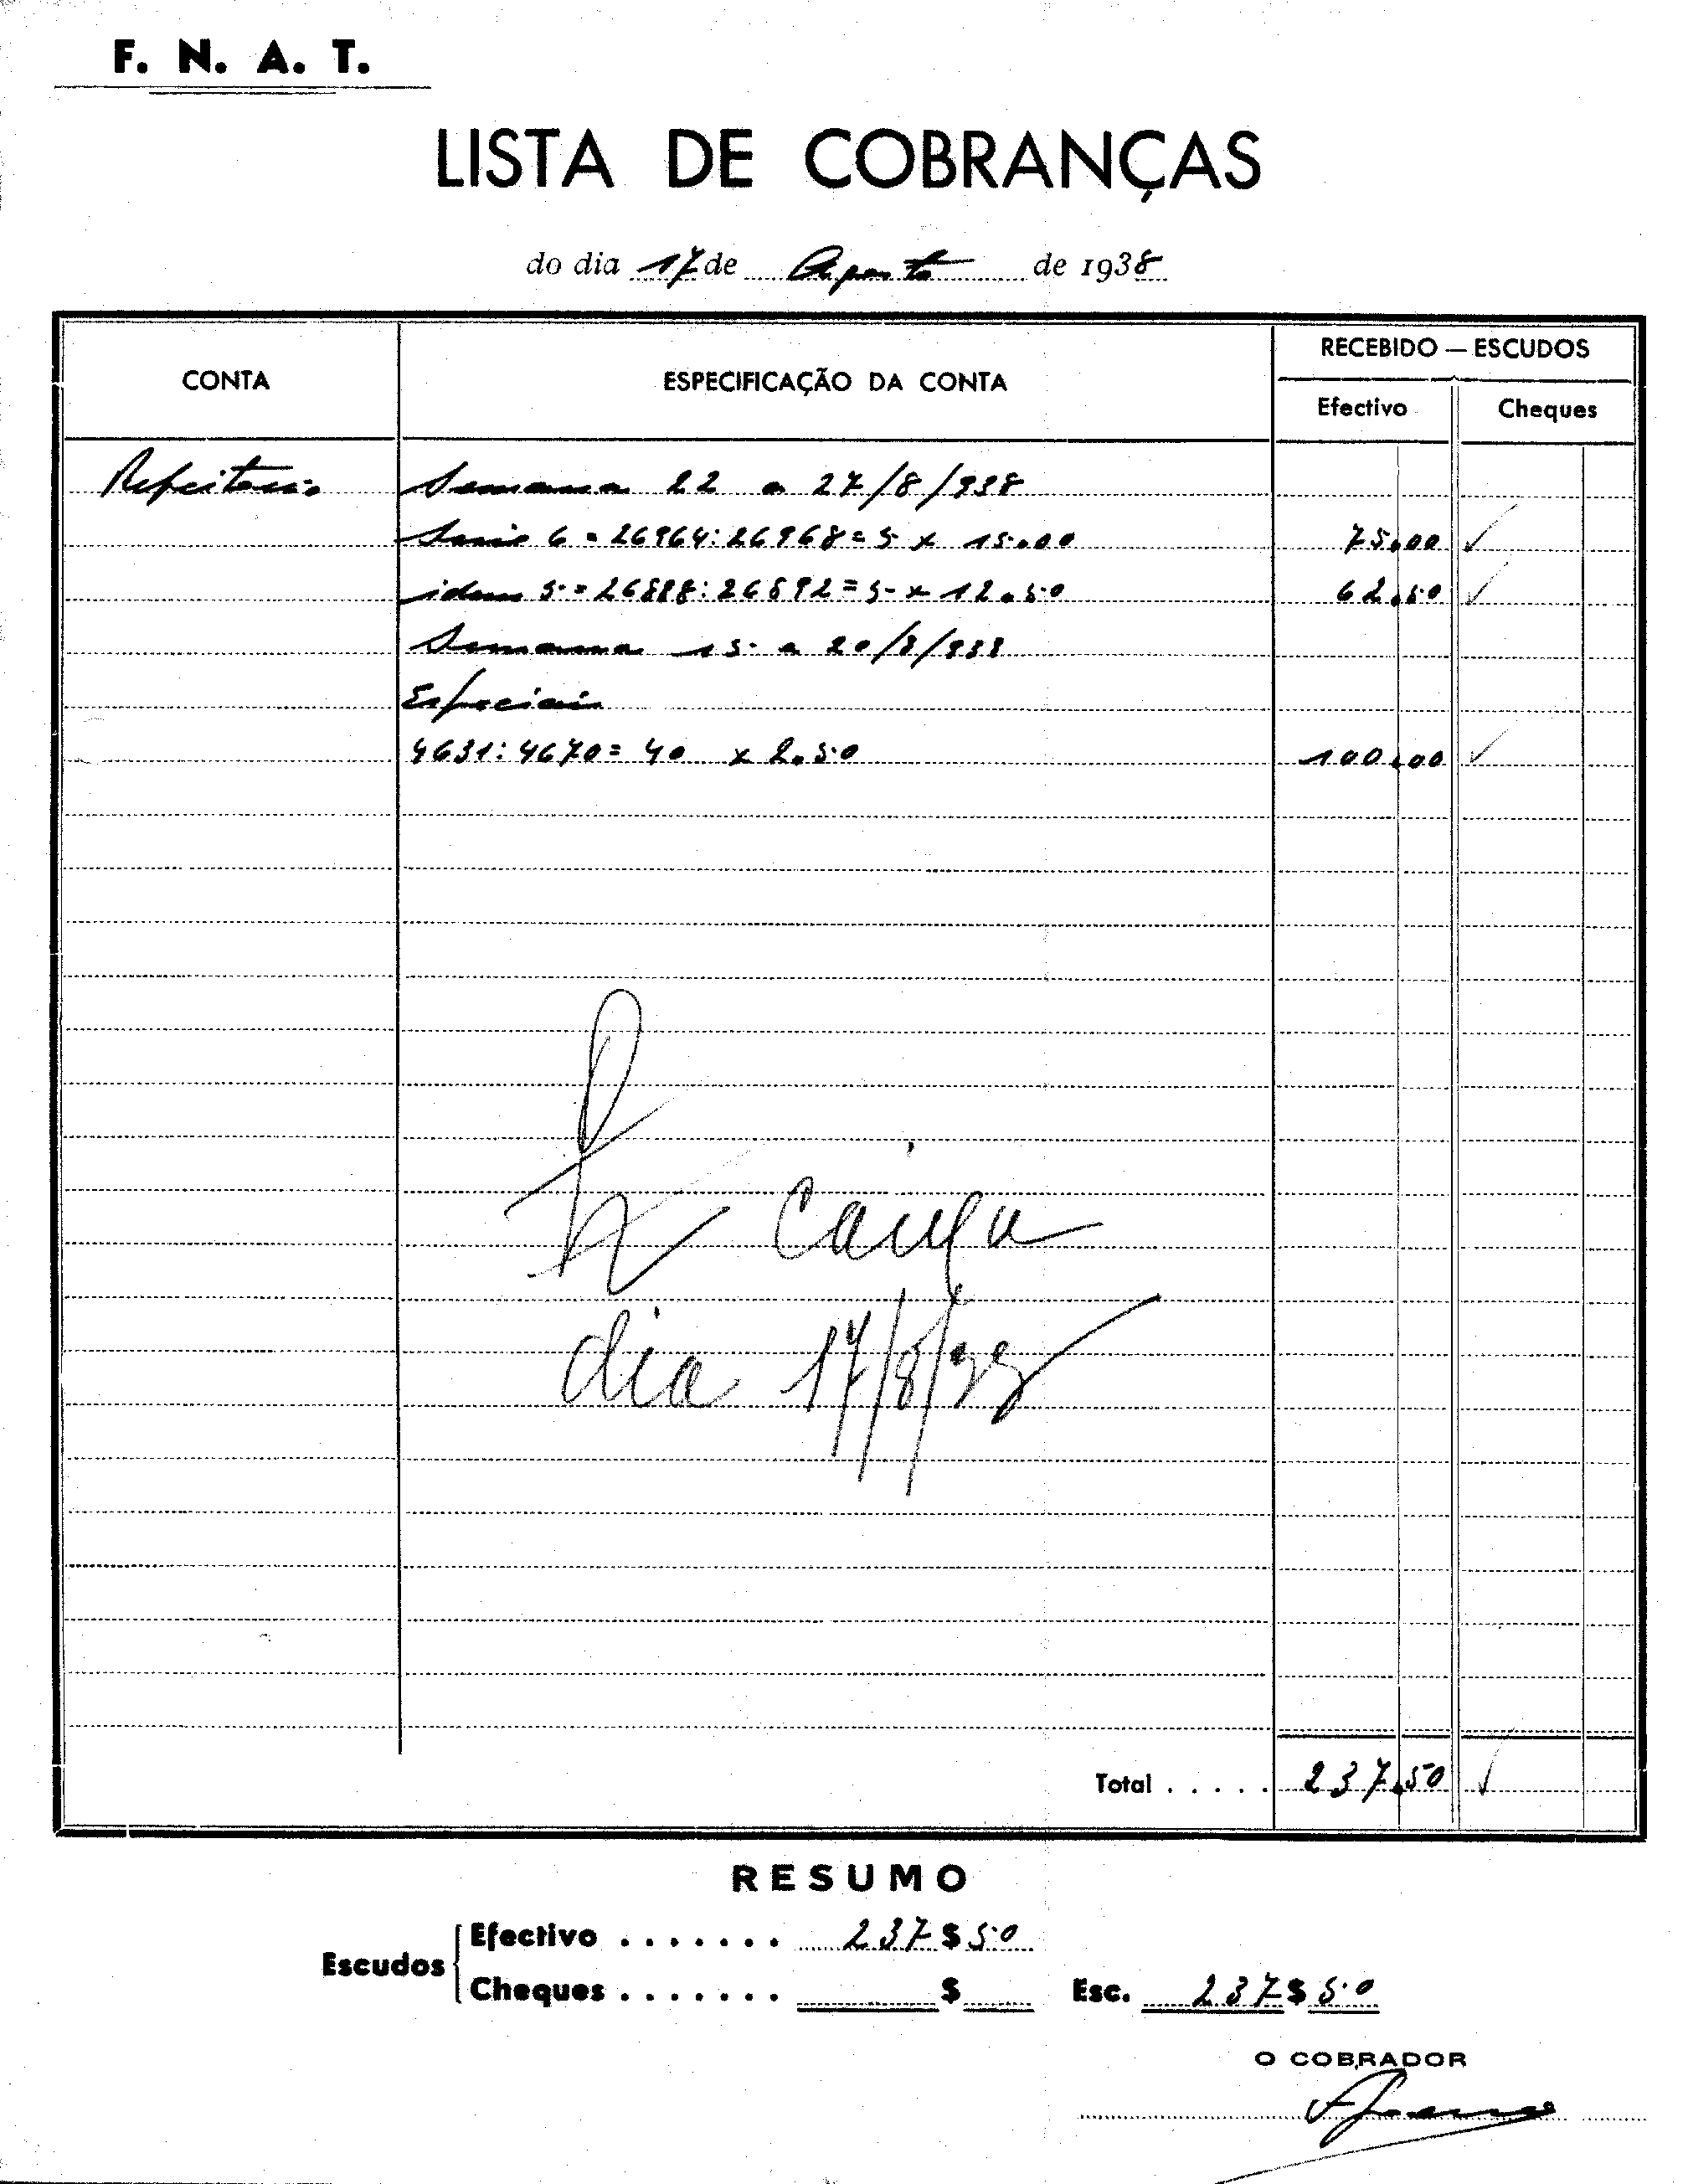 F. N. A. T.
LISTA DE COBRANÇAS
do dia 17 de Agosto de 1938
CONTA
ESPECIFICAÇÃO DA CONTA
RECEBIDO — ESCUDOS
Efectivo
Cheques
Refeitorio Semana 22 a 27/8/938
Serie 6 = 26964:26968 = 5 x 15.00 75.00
idem 5 = 26888:26892 = 5 x 12.50 62.50
Semana 15 a 20/8/938
Especiais
4631:4670 = 40 x 2.50 100.00
caixa
dia 17/8/38
Total . . . . . 237.50
RESUMO
Escudos
Efectivo . . . . . . . 237$50
Cheques . . . . . . . $
Esc. 237$50
O COBRADOR